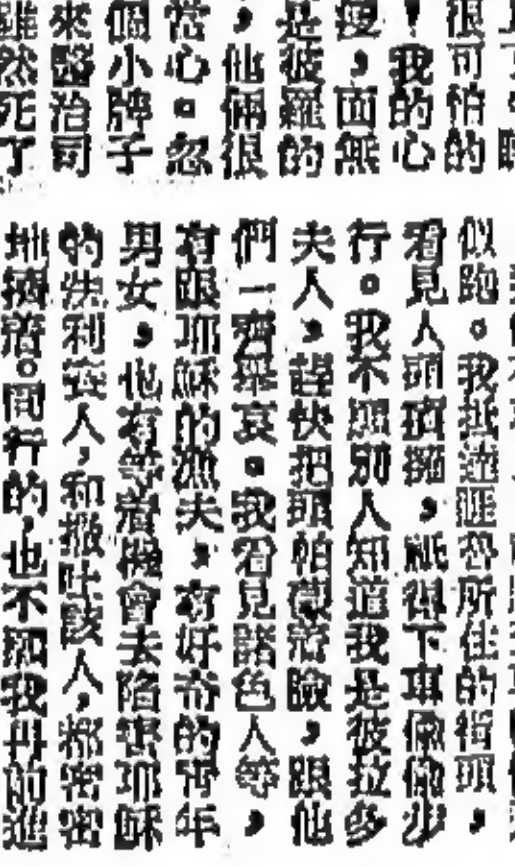 很可怕的
！我的心
瘦，面無
是彼羅的
，他倆很
當心。忽
個小牌子
來醫治司
雖然死了
似跑。我抵達所住的街頭，
看見人頭擠擁，祇得下車偷偷步
行。我不想別人知道我是彼拉多
夫人，趕快把眼帕蒙着臉，跟他
們一齊舉哀。我看見諸色人等，
有跟耶穌的漁夫，有好奇的青年
男女，也有等着機會去陷耶穌
的法利賽人，和撒吐該人，都密密
地擠着。同行的，也不我再前進